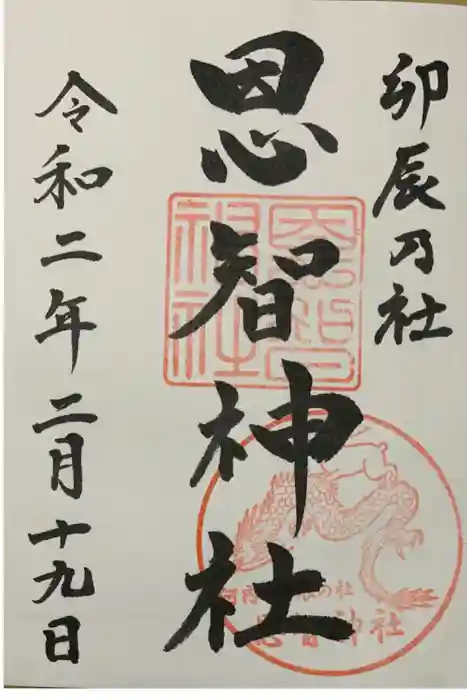 卯辰乃社
恩智神社
令和二年二月十九日
恩智神社
恩智神社